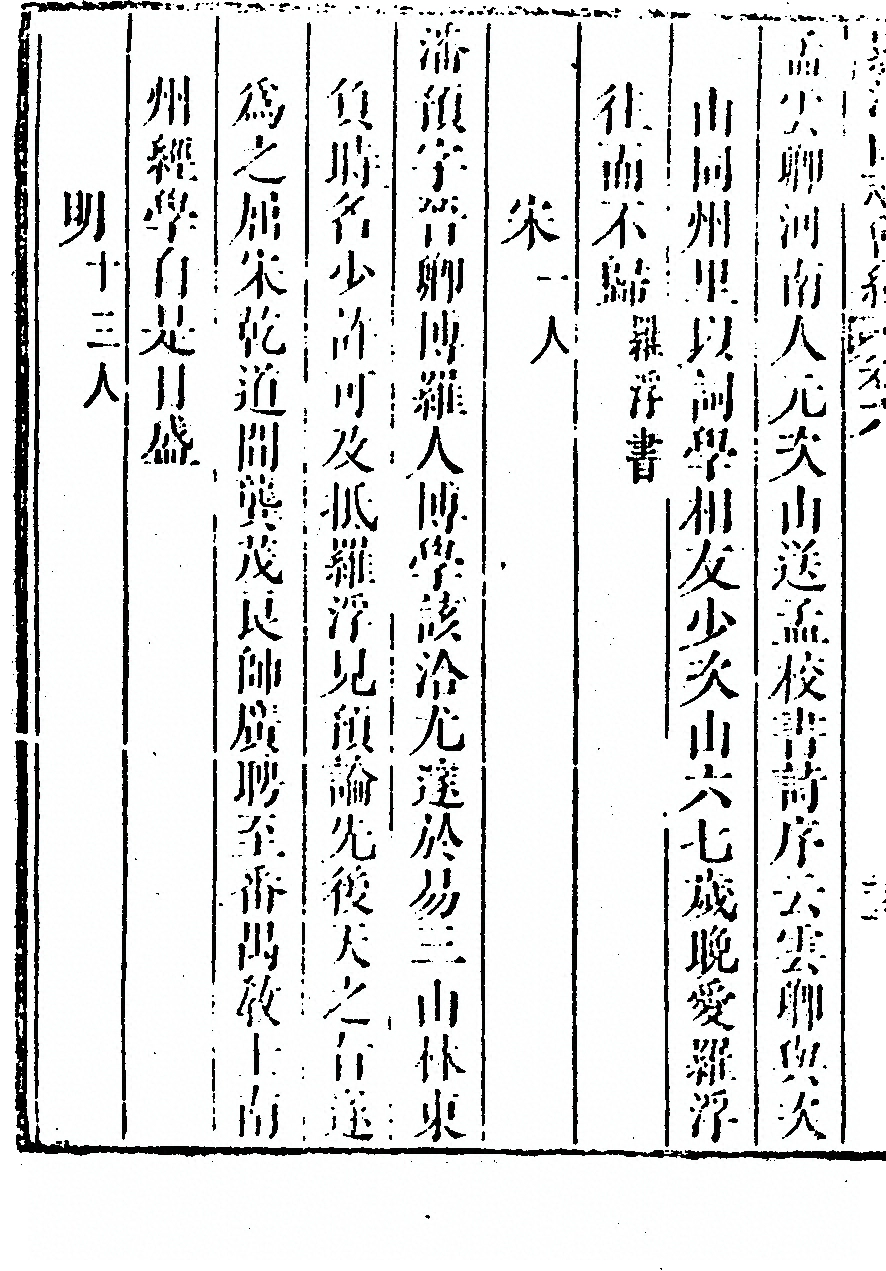 孟雲卿河南人元次山送孟校書詩序云雲卿與次
山同州里以詞學相友少次山六七歲晚愛羅浮
往而不歸羅浮書
宋一人
潘預字晉卿博羅人博學該洽尤邃於易三山林東
負時名少許可及抵羅浮見預論先後天之旨遂
為之屈宋乾道間龔茂良師廣聘至番禺敎士南
州經學自是日盛
明十三人